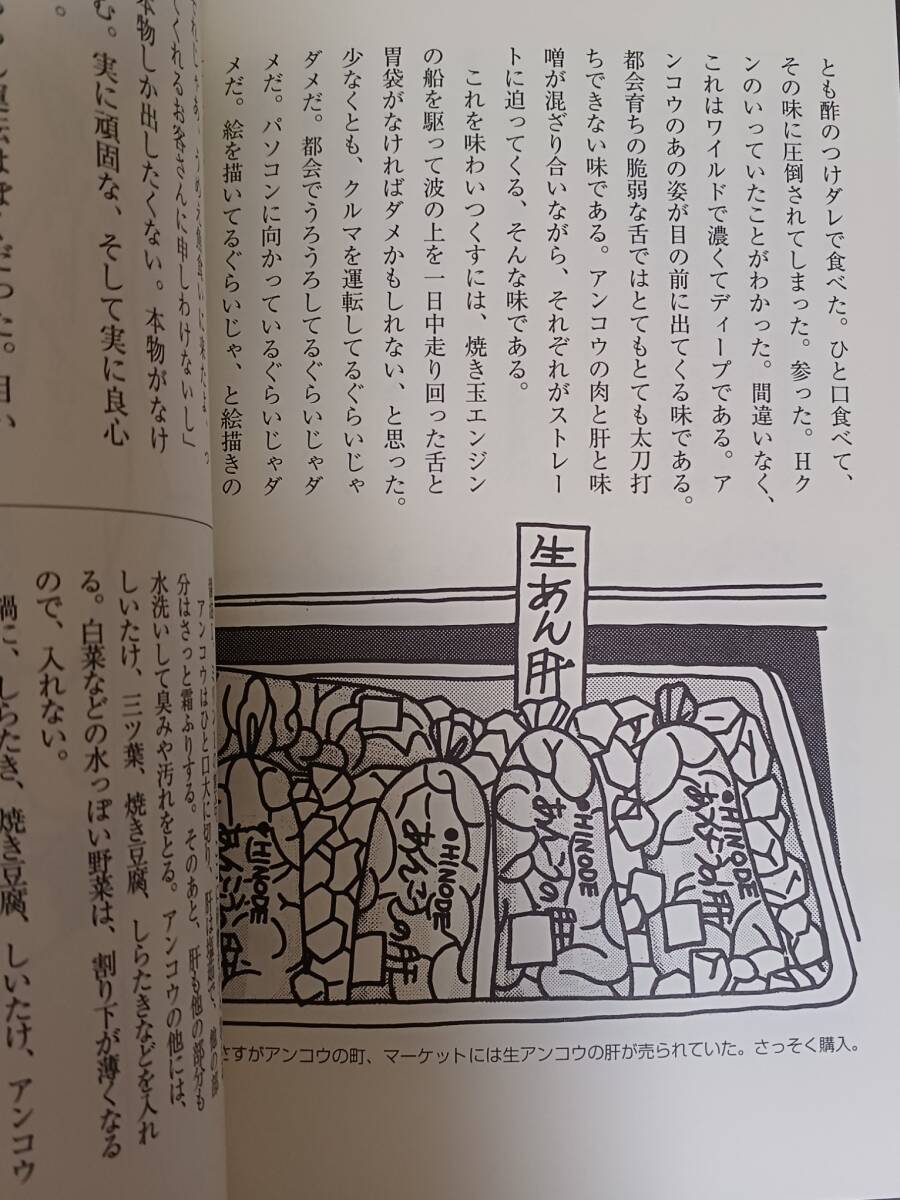 とも酢のつけダレで食べた。ひと口食べて、
その味に圧倒されてしまった。参った。Hク
ンのいっていたことがわかった。間違いなく、
これはワイルドで濃くてディープである。ア
ンコウのあの姿が目の前に出てくる味である。
都会育ちの脆弱な舌ではとてもとても太刀打
ちできない味である。アンコウの肉と肝と味
噌が混ざり合いながら、それぞれがストレー
トに迫ってくる、そんな味である。
これを味わいつくすには、焼き玉エンジン
の船を駆って波の上を一日中走り回った舌と
胃袋がなければダメかもしれない、と思った。
少なくとも、クルマを運転してるぐらいじゃ
ダメだ。都会でうろうろしてるぐらいじゃダ
メだ。パソコンに向かっているぐらいじゃダ
メだ。絵を描いてるぐらいじゃ、と絵描きの
生あん肝
HINODE
あんこうの肝
HINODE
あんこうの肝
HINODE
あんこうの肝
HINODE
さすがアンコウの町、マーケットには生アンコウの肝が売られていた。さっそく購入。
てくれるお客さんに申しわけないし」
本物しか出したくない。本物がなけ
む。実に頑固な、そして実に良心
。
アンコウはひと口大に切り、肝は
分はさっと霜ふりする。そのあと、肝も他の部分も
水洗いして臭みや汚れをとる。アンコウの他には、
しいたけ、三ツ葉、焼き豆腐、しらたきなどを入れ
る。白菜などの水っぽい野菜は、割り下が薄くなる
ので、入れない。
鍋に、しらたき、焼き豆腐、しいたけ、アンコウ